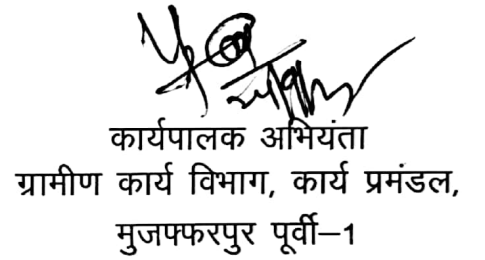 कार्यपालक अभियंता
ग्रामीण कार्य विभाग, कार्य प्रमंडल,
मुजफ्फरपुर पूर्वी–1